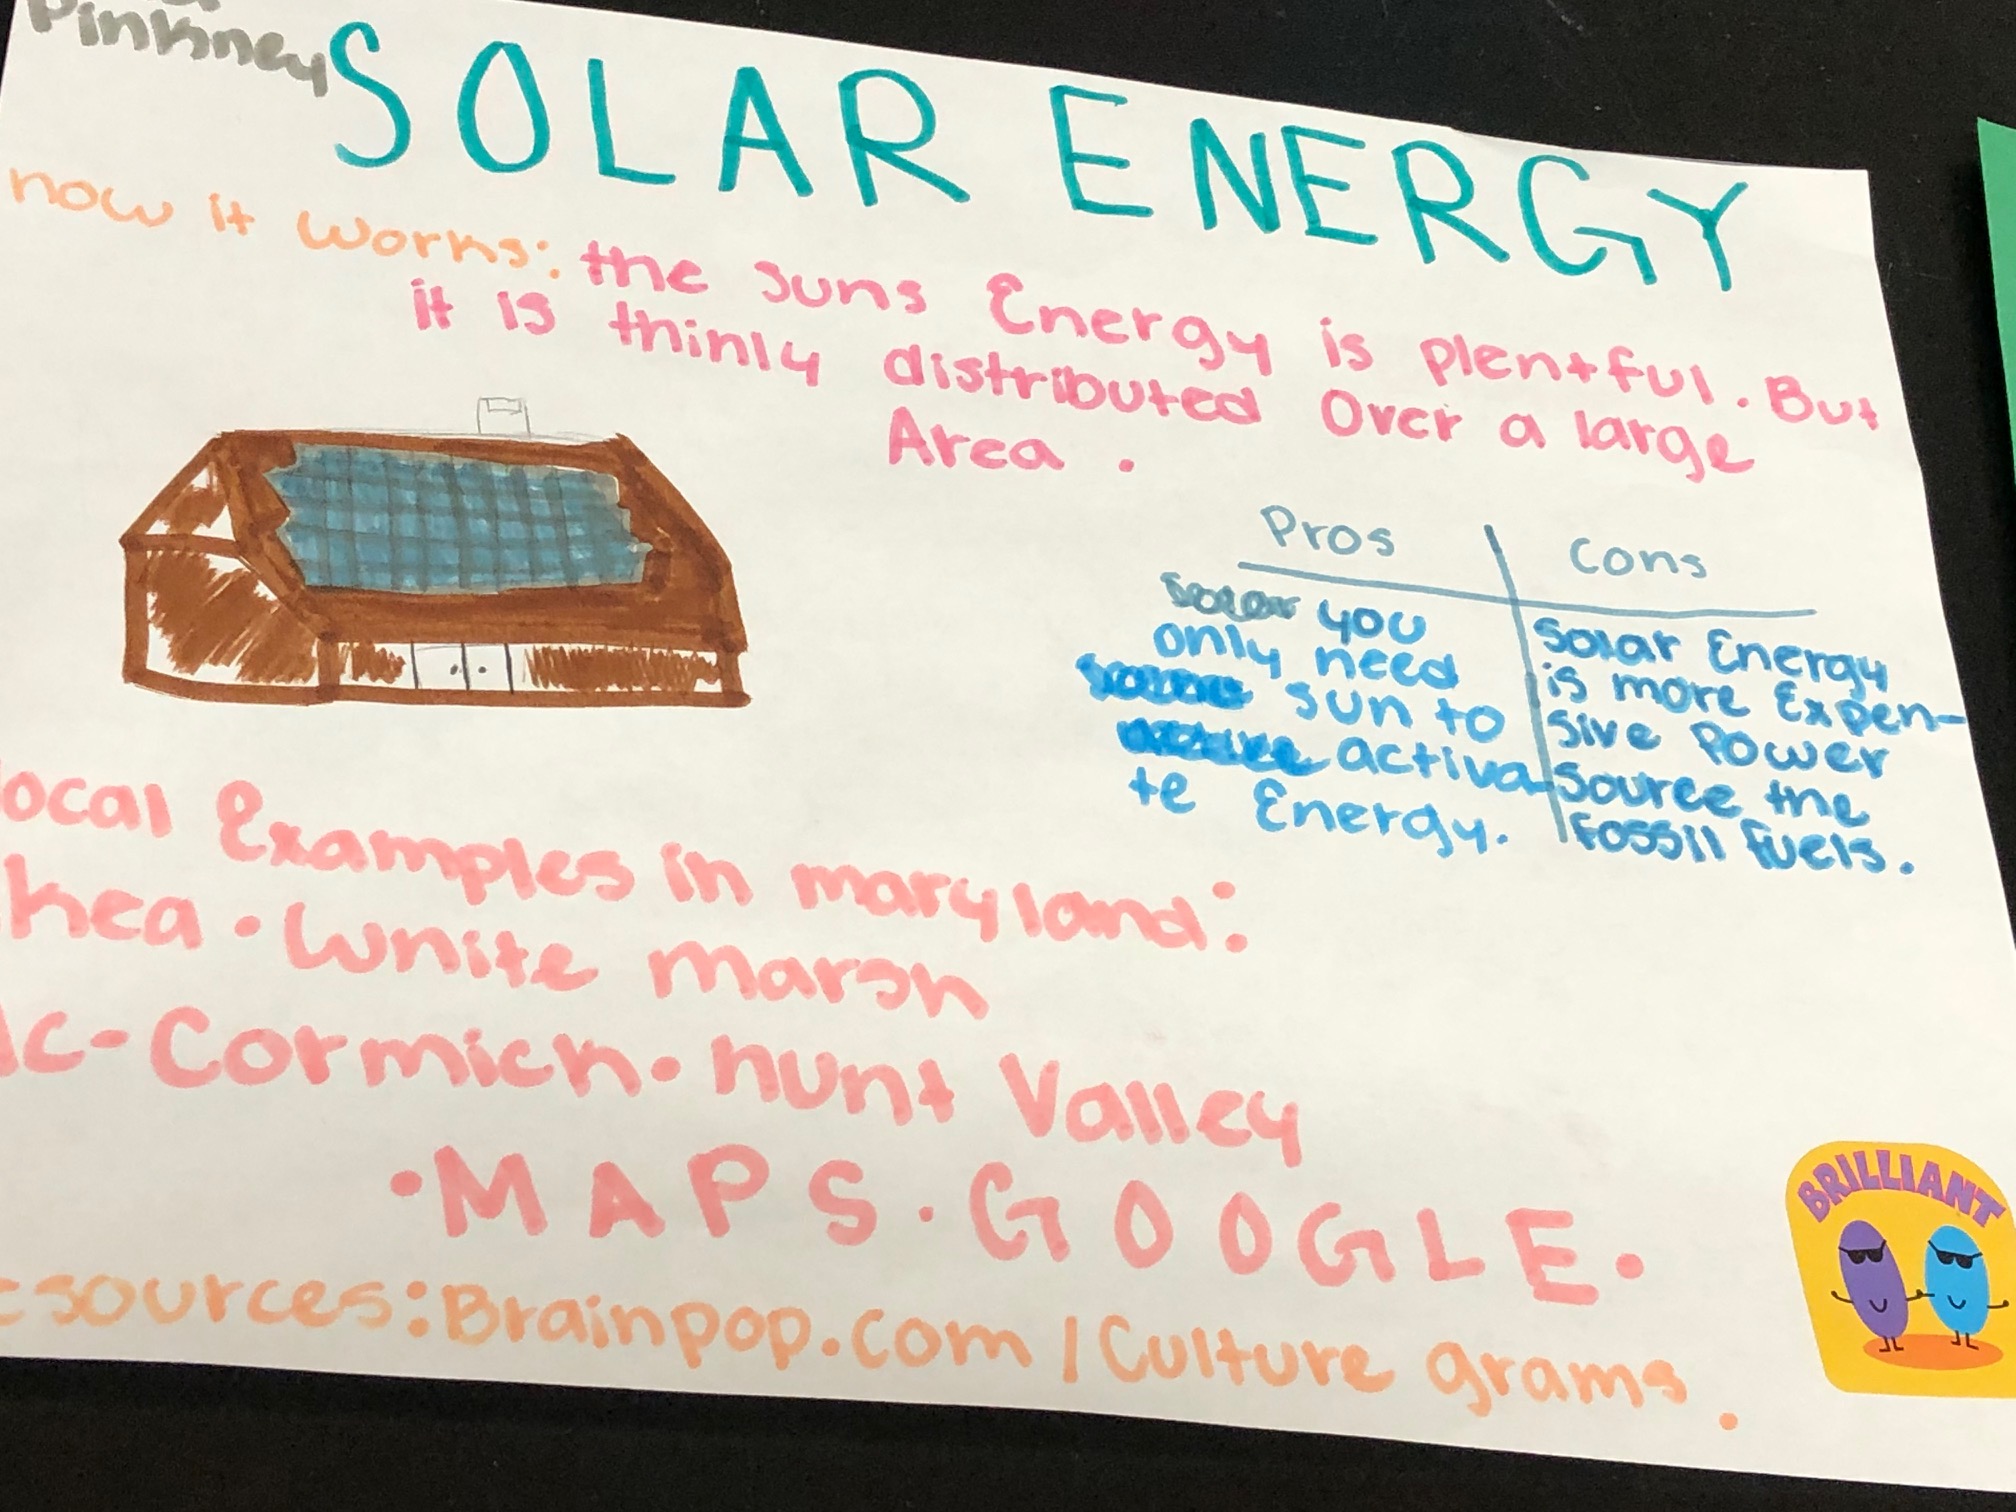 Pinkney
SOLAR ENERGY
how it works: the suns Energy is plentful. But
it is thinly distributed Over a large
Area.
Pros
Cons
solar you
only need
sun to
activa-
te Energy.
Solar Energy
is more Expen-
sive Power
Source the
Fossil Fuels.
local Examples in maryland:
khea • white marsh
Mc-Cormick • hunt Valley
• MAPS. GOOGLE.
esources: Brainpop.com / Culture grams.
BRILLIANT